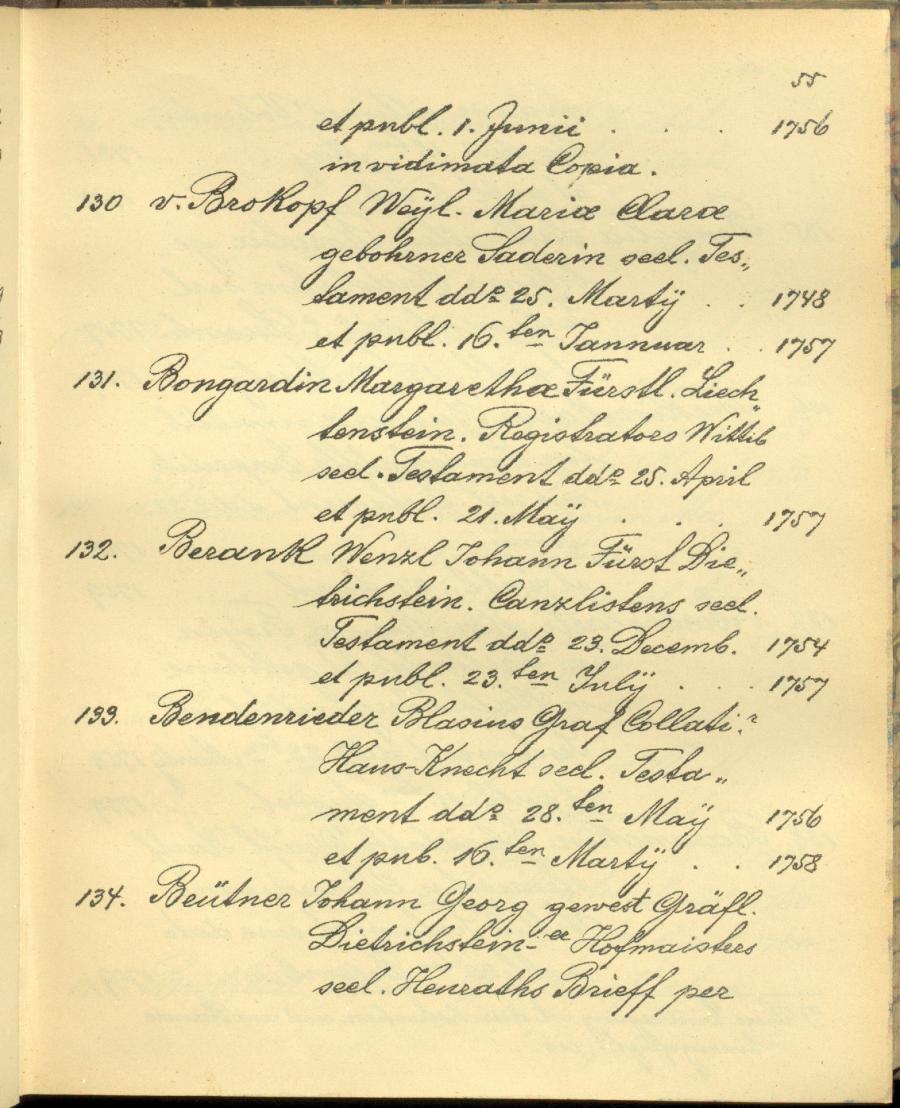 55
et publ. 1. Junii . . . 1756
in vidimata Copia.
130 v. Brokopf Weÿl. Mariæ Claræ
gebohrner Saderin seel. Tes„
tament dd⁰ 25. Martÿ . . 1748
et publ. 16.ten Jannuar . . 1757
131. Bongardin Margarethæ Fürstl. Liech„
tenstein. Registrators Wittib
seel. Testament dd⁰ 25. April
et publ. 21. Maÿ . . . 1757
132. Berank Wenzl Johann Fürst Die„
trichstein. Canzlistens seel.
Testament dd⁰ 23. Decemb. 1754
et publ. 23.ten Julÿ . . 1757
133. Bendenrieder Blasius Graf Collati.?
Haus-Knecht seel. Testa„
ment dd⁰ 28.ten Maÿ 1756
et pub. 16.ten Martÿ . . 1758
134. Beütner Johann Georg gewest Gräfl.
Dietrichstein-er Hofmaisters
seel. Heuraths Brieff per